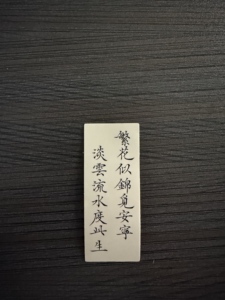 繁花似錦覓安寧
淡雲流水度此生